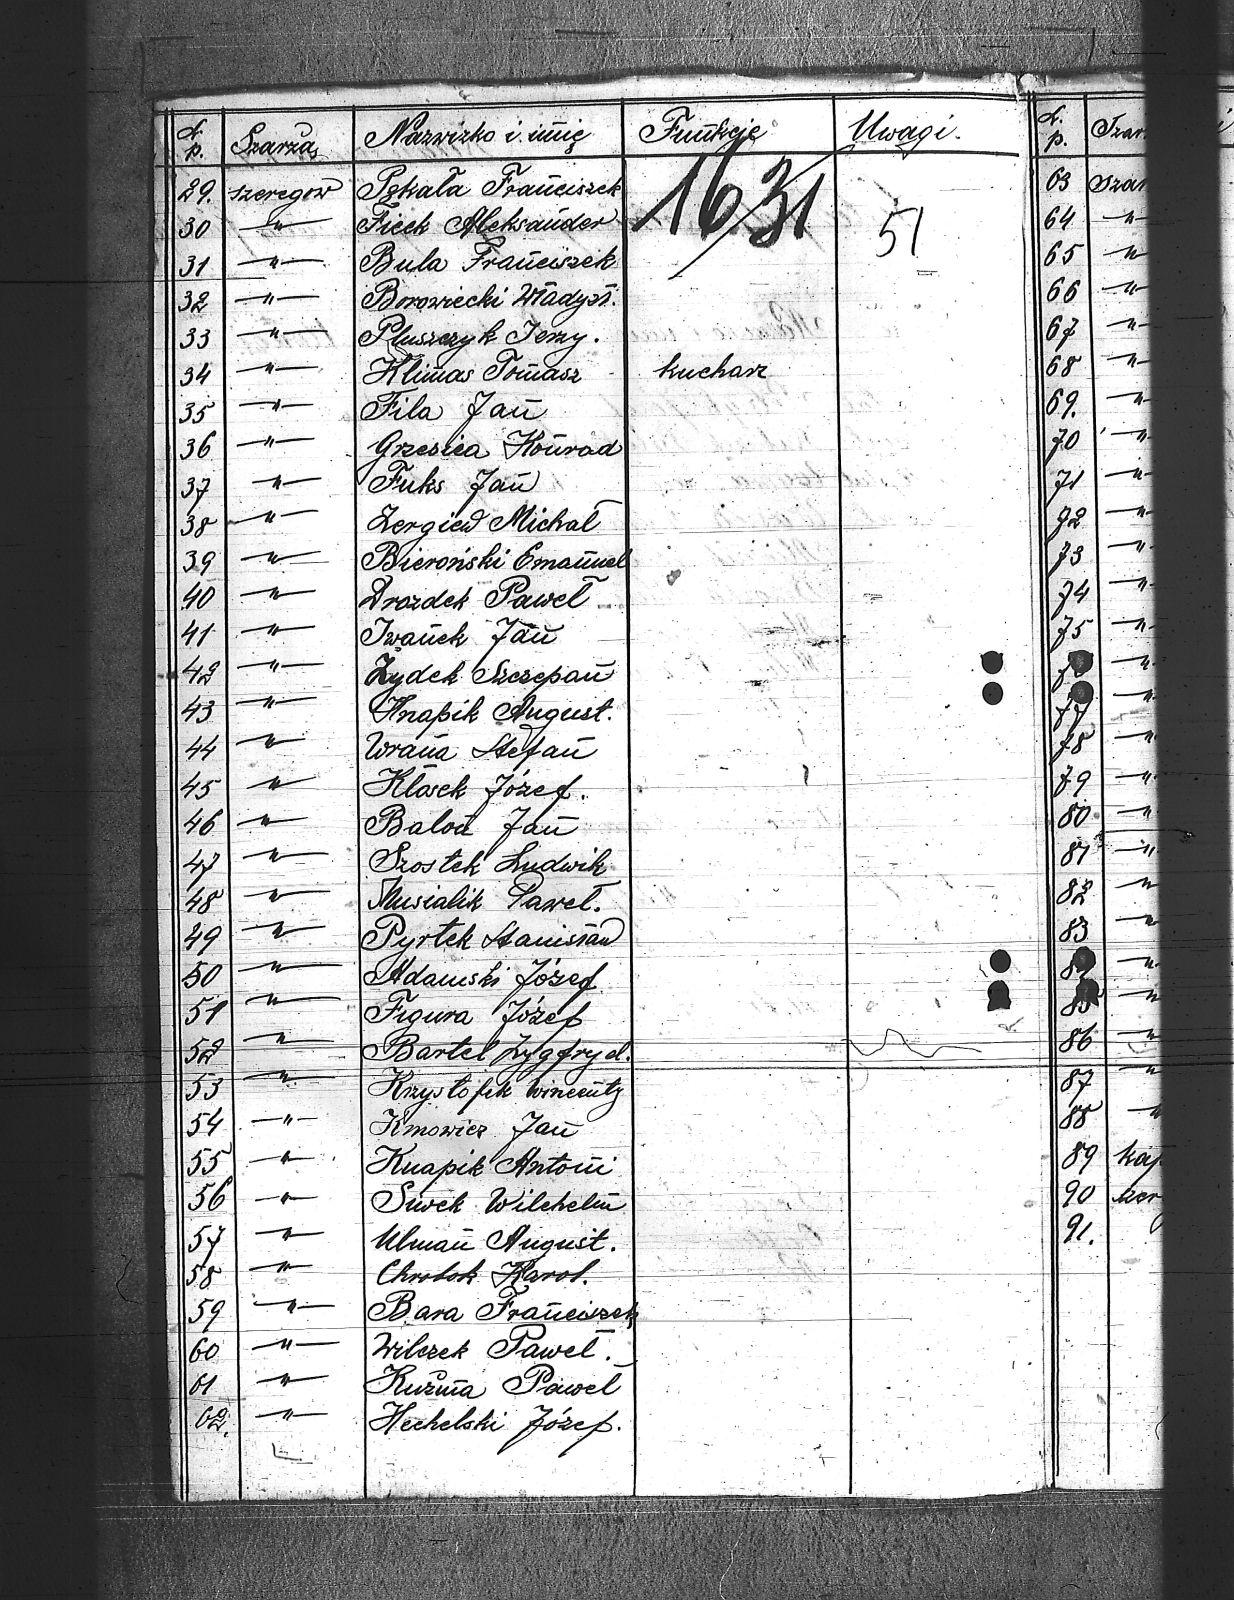 L.p. Szarża Nazwizko i imię Funkcje Uwagi.
29. szeregow Pękała Franciszek
16/31
51
30 -"- Ficek Aleksander
31 -"- Bula Franciszek
32 -"- Borowiecki Władysł.
33 -"- Pluszczyk Jerzy.
34 -"- Klimas Tomasz kucharz
35 -"- Fila Jan
36 -"- Grzesica Konrad
37 -"- Fuks Jan
38 -"- Zergieŭ Michał
39 -"- Bieroński Emanuel
40 -"- Drozdek Paweł
41 -"- Iwanek Jan
42 -"- Żydek Szczepan
43 -"- Knapik August.
44 -"- Wrana Stefan
45 -"- Klosek Józef.
46 -"- Balon Jan
47 -"- Szostek Ludwik
48 -"- Musialik Paweł.
49 -"- Pyrtek Stanisław
50 -"- Adamski Józef
51 -"- Figura Józef
52 -"- Bartel Zygfryd.
53 -"- Krzystofik Wincenty
54 -"- Kmowicz Jan
55 -"- Knapik Antoni
56 -"- Siwek Wilchelm
57 -"- Ulman August.
58 -"- Chrobok Karol.
59 -"- Bara Franciszek
60 -"- Wilczek Paweł.
61 -"- Kuźma Paweł
62. -"- Hechelski Józef.
L.p. Szar
63 szar
64 -"-
65 -"-
66 -"-
67 -"-
68 -"-
69. -"-
70 -"-
71 -"-
72 -"-
73 -"-
74 -"-
75 -"-
76 -"-
77 -"-
78 -"-
79 -"-
80 -"-
81 -"-
82 -"-
83 -"-
84 -"-
85 -"-
86 -"-
87 -"-
88 -"-
89 kap
90 szer
91.